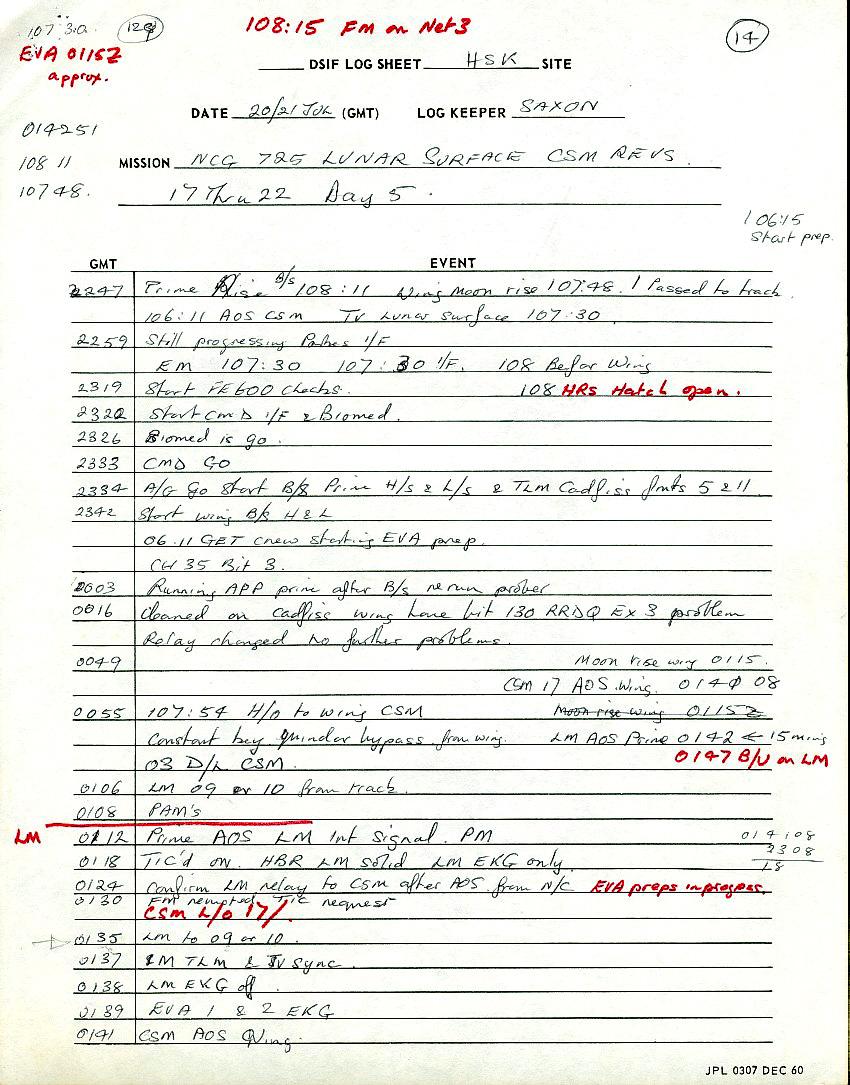 107:30 129 108:15 FM on Net3 14
EVA 0115Z
approx.
DSIF LOG SHEET HSK SITE
DATE 20/21 JUL (GMT) LOG KEEPER SAXON
014251
108 11 MISSION NCG 725 LUNAR SURFACE CSM REVS.
10748. 17 Thru 22 Day 5.
106:15
Start prep.
GMT EVENT
2247 Prime Rise B/s 108:11 Wing Moon rise 107:48. 1 Passed to track
106:11 AOS CSM TV Lunar Surface 107:30
2259 Still progressing I/F
EM 107:30 107:30 I/F. 108 Wing
2319 Start FE600 Checks. 108 HRs Hatch open.
2322 Start CMD I/F & Biomed.
2326 Biomed is go.
2333 CMD GO
2334 A/G Go Start B/S Prime H/s & L/s & TLM Cadfiss fmts 5 & 11
2342 Start wing B/s H&L
06.11 GET crew starting EVA prep.
CH 35 Bit 3.
0003 Running APP prime after B/s rerun
0016 Cleaned on Cadfiss wing have bit 130 RRDQ Ex 3 problem
Relay changed no further problems.
0049 Moon rise wing 0115.
CSM 17 AOS Wing. 0140 08
0055 107:54 H/o to wing CSM Moon rise wing 0115Z
Constant key quindar bypass from wing. LM AOS Prime 0142 ← 15 mins
03 D/L CSM. 0147 B/U on LM
0106 LM 09 or 10 from track.
0108 PAM's
LM 0112 Prime AOS LM Int Signal. PM 014108
0118 TIC'd on. HBR LM solid LM EKG only. 2308
18
0124 Confirm LM relay to CSM after AOS from N/C EVA preps in progress.
0130 FM TIC request
CSM L/O 17/
0135 LM to 09 or 10.
0137 LM TLM & TV Sync.
0138 LM EKG off.
0139 EVA 1 & 2 EKG
0141 CSM AOS Wing.
JPL 0307 DEC 60